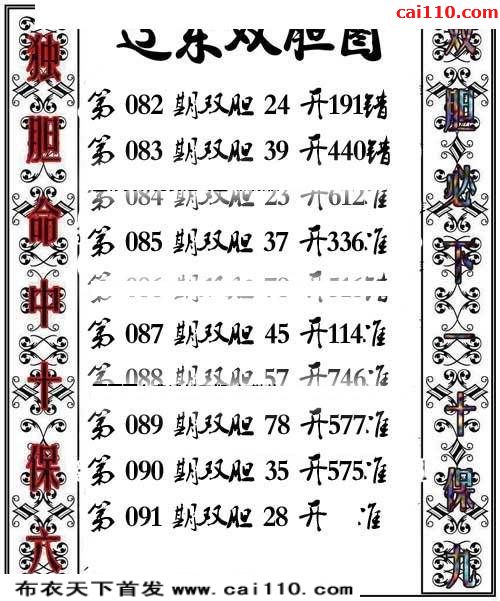 cai110.com
辽东双胆图
独胆命中十保六
第 082 期双胆 24 开191错
第 083 期双胆 39 开440错
第 084 期双胆 23 开612准
第 085 期双胆 37 开336准
第 087 期双胆 45 开114准
第 088 期双胆 57 开746准
第 089 期双胆 78 开577准
第 090 期双胆 35 开575准
第 091 期双胆 28 开 准
双胆必下一十保九
布衣天下首发 www.cai110.com